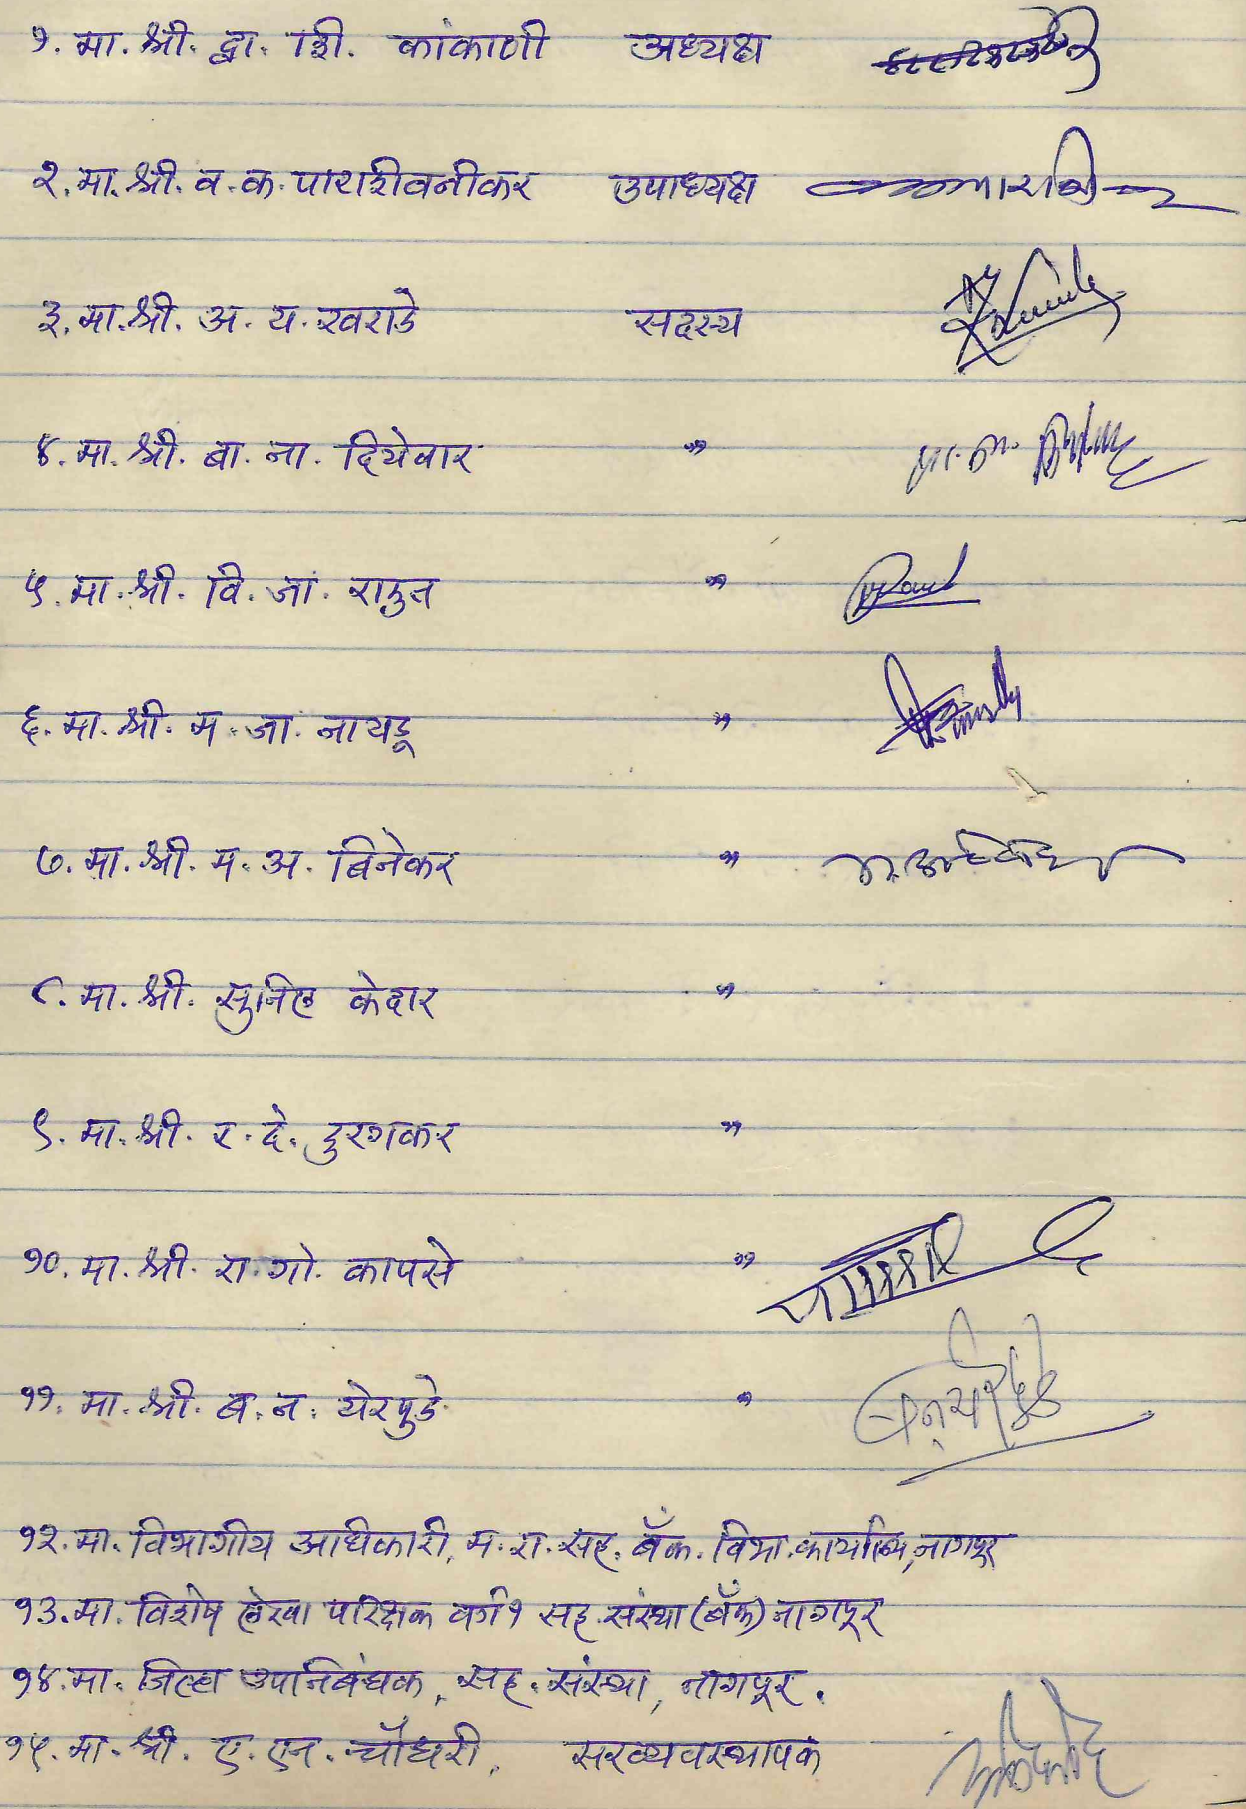 १. मा. श्री. द्वा. शि. कांकाणी अध्यक्ष
२. मा. श्री. व. क. पाराशीवनीकर उपाध्यक्ष
३. मा. श्री. अ. य. खराडे सदस्य
४. मा. श्री. बा. ना. दियेवार "
५. मा. श्री. वि. जा. राऊत "
६. मा. श्री. म. जा. नायडू "
७. मा. श्री. म. अ. बिनेकर "
८. मा. श्री. सुनिल केदार "
९. मा. श्री. र. दे. दुरगकर "
१०. मा. श्री. रा. गो. कापसे "
११. मा. श्री. ब. न. येरपुडे "
१२. मा. विभागीय अधिकारी, म. रा. सह. बँक. विभा. कार्यालय, नागपूर
१३. मा. विशेष लेखा परिक्षक वर्ग १ सह. संस्था (बँक) नागपूर
१४. मा. जिल्हा उपनिबंधक, सह. संस्था, नागपूर.
१५. मा. श्री. ए. एन. चौधरी, सरव्यवस्थापक